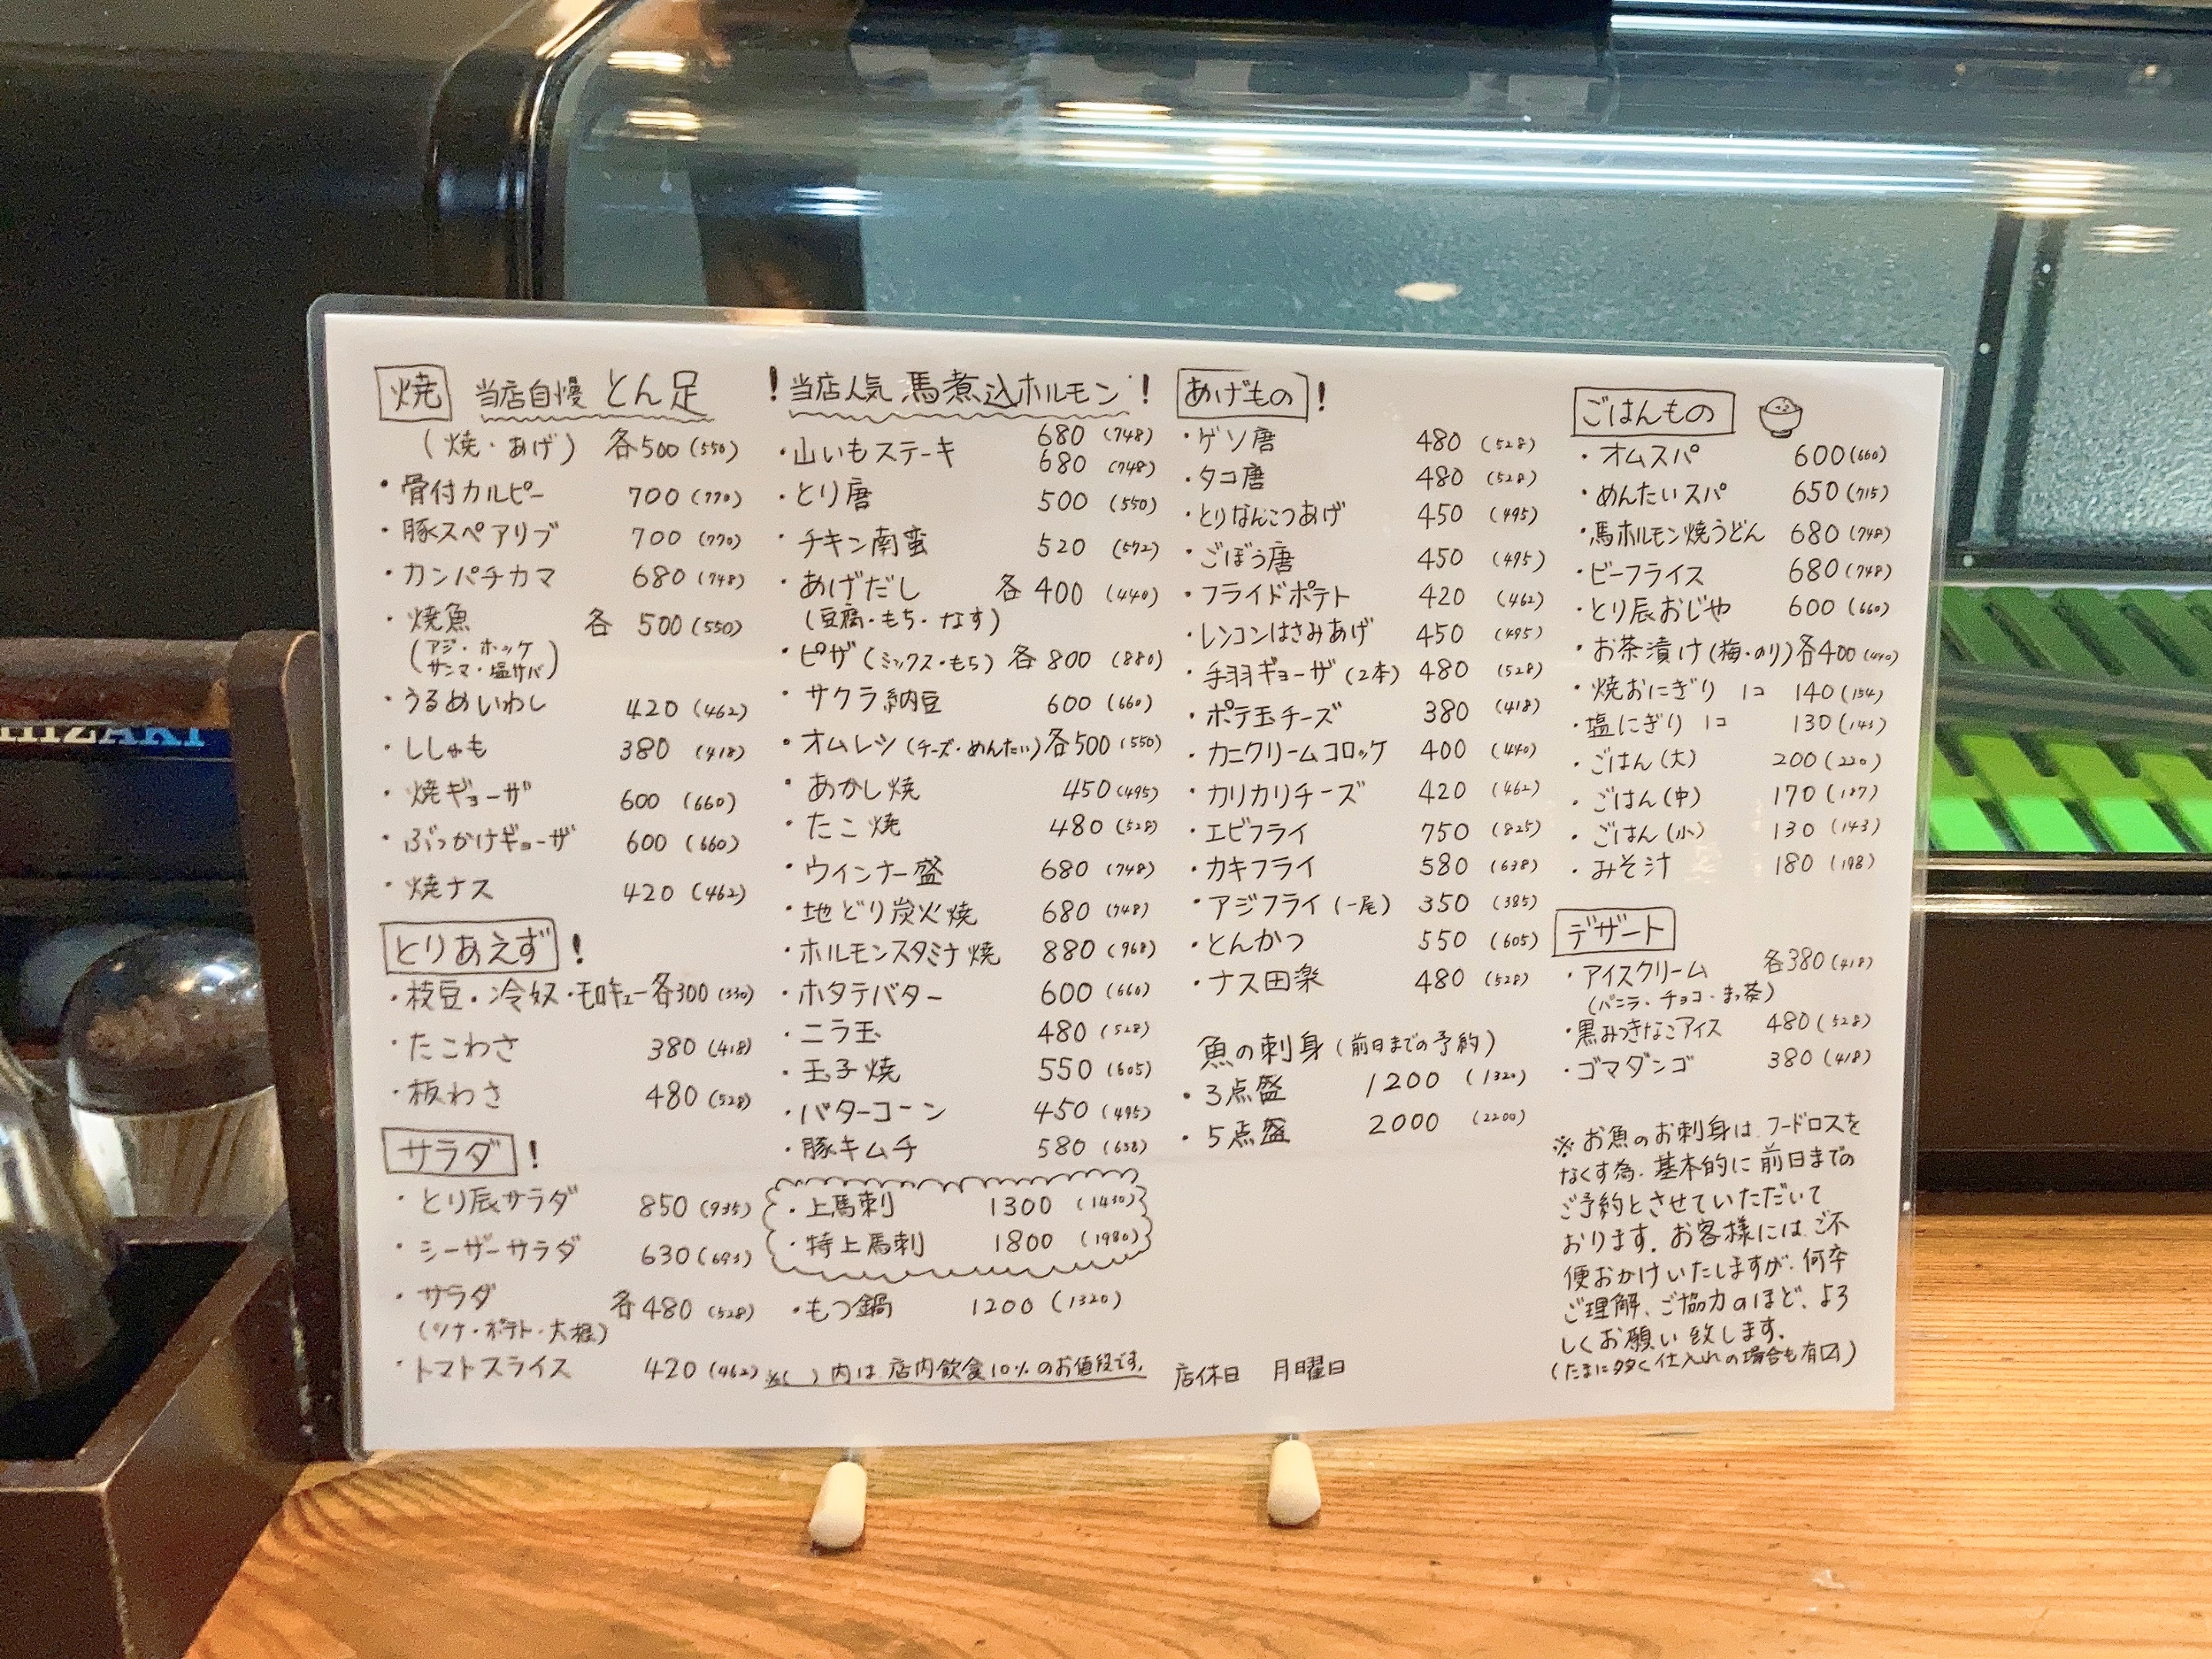 焼 当店自慢 とん足
(焼・あげ) 各500(550)
・骨付カルビー 700(770)
・豚スペアリブ 700(770)
・カンパチカマ 680(748)
・焼魚 各500(550)
(アジ・ホッケ
サンマ・塩サバ)
・うるめいわし 420(462)
・ししゃも 380(418)
・焼ギョーザ 600(660)
・ぶっかけギョーザ 600(660)
・焼ナス 420(462)
とりあえず!
・枝豆・冷奴・モロキュー各300(330)
・たこわさ 380(418)
・板わさ 480(528)
サラダ!
・とり辰サラダ 850(935)
・シーザーサラダ 630(693)
・サラダ 各480(528)
(ツナ・ポテト・大根)
・トマトスライス 420(462)
!当店人気 馬煮込ホルモン!
680(748)
・山いもステーキ 680(748)
・とり唐 500(550)
・チキン南蛮 520(572)
・あげだし 各400(440)
(豆腐・もち・なす)
・ピザ(ミックス・もち) 各800(880)
・サクラ納豆 600(660)
・オムレツ(チーズ・めんたい)各500(550)
・あかし焼 450(495)
・たこ焼 480(528)
・ウィンナー盛 680(748)
・地どり炭火焼 680(748)
・ホルモンスタミナ焼 880(968)
・ホタテバター 600(660)
・ニラ玉 480(528)
・玉子焼 550(605)
・バターコーン 450(495)
・豚キムチ 580(638)
・上馬刺 1300(1430)
・特上馬刺 1800(1980)
・もつ鍋 1200(1320)
※( )内は店内飲食10%のお値段です。
あげもの!
・ゲソ唐 480(528)
・タコ唐 480(528)
・とりなんこつあげ 450(495)
・ごぼう唐 450(495)
・フライドポテト 420(462)
・レンコンはさみあげ 450(495)
・手羽ギョーザ(2本) 480(528)
・ポテ玉チーズ 380(418)
・カニクリームコロッケ 400(440)
・カリカリチーズ 420(462)
・エビフライ 750(825)
・カキフライ 580(638)
・アジフライ(一尾) 350(385)
・とんかつ 550(605)
・ナス田楽 480(528)
魚の刺身(前日までの予約)
・3点盛 1200(1320)
・5点盛 2000(2200)
店休日 月曜日
ごはんもの
・オムスパ 600(660)
・めんたいスパ 650(715)
・馬ホルモン焼うどん 680(748)
・ビーフライス 680(748)
・とり辰おじや 600(660)
・お茶漬け(梅・のり)各400(440)
・焼おにぎり 1コ 140(154)
・塩にぎり 1コ 130(143)
・ごはん(大) 200(220)
・ごはん(中) 170(187)
・ごはん(小) 130(143)
・みそ汁 180(198)
デザート
・アイスクリーム 各380(418)
(バニラ・チョコ・まっ茶)
・黒みつきなこアイス 480(528)
・ゴマダンゴ 380(418)
※お魚のお刺身は、フードロスを
なくす為、基本的に前日までの
ご予約とさせていただいて
おります。お客様にはご不
便おかけいたしますが、何卒
ご理解、ご協力のほど、よろ
しくお願い致します。
(たまに多く仕入れの場合も有り)